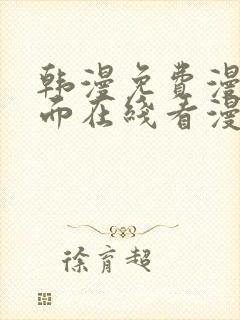 韩漫免费漫
而在线看漫
徐育超